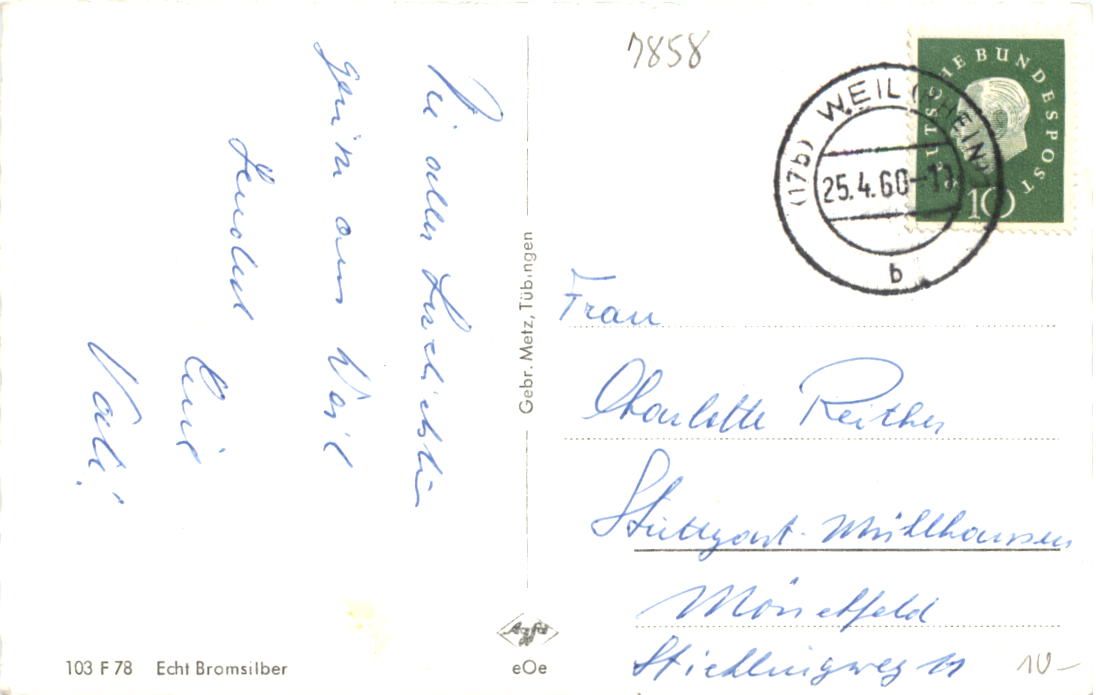 Die allerherzlichsten
aus Weil
sendet
Euer
Vati!
7858
WEIL (RHEIN)
(17b)
25.4.60-1
b
DEUTSCHE BUNDESPOST
10
Gebr. Metz, Tübingen
Frau
Charlotte Reither
Stuttgart-Mühlhausen
Mönchfeld
Stichlingweg 11
10-
Agfa
eOe
103 F 78 Echt Bromsilber